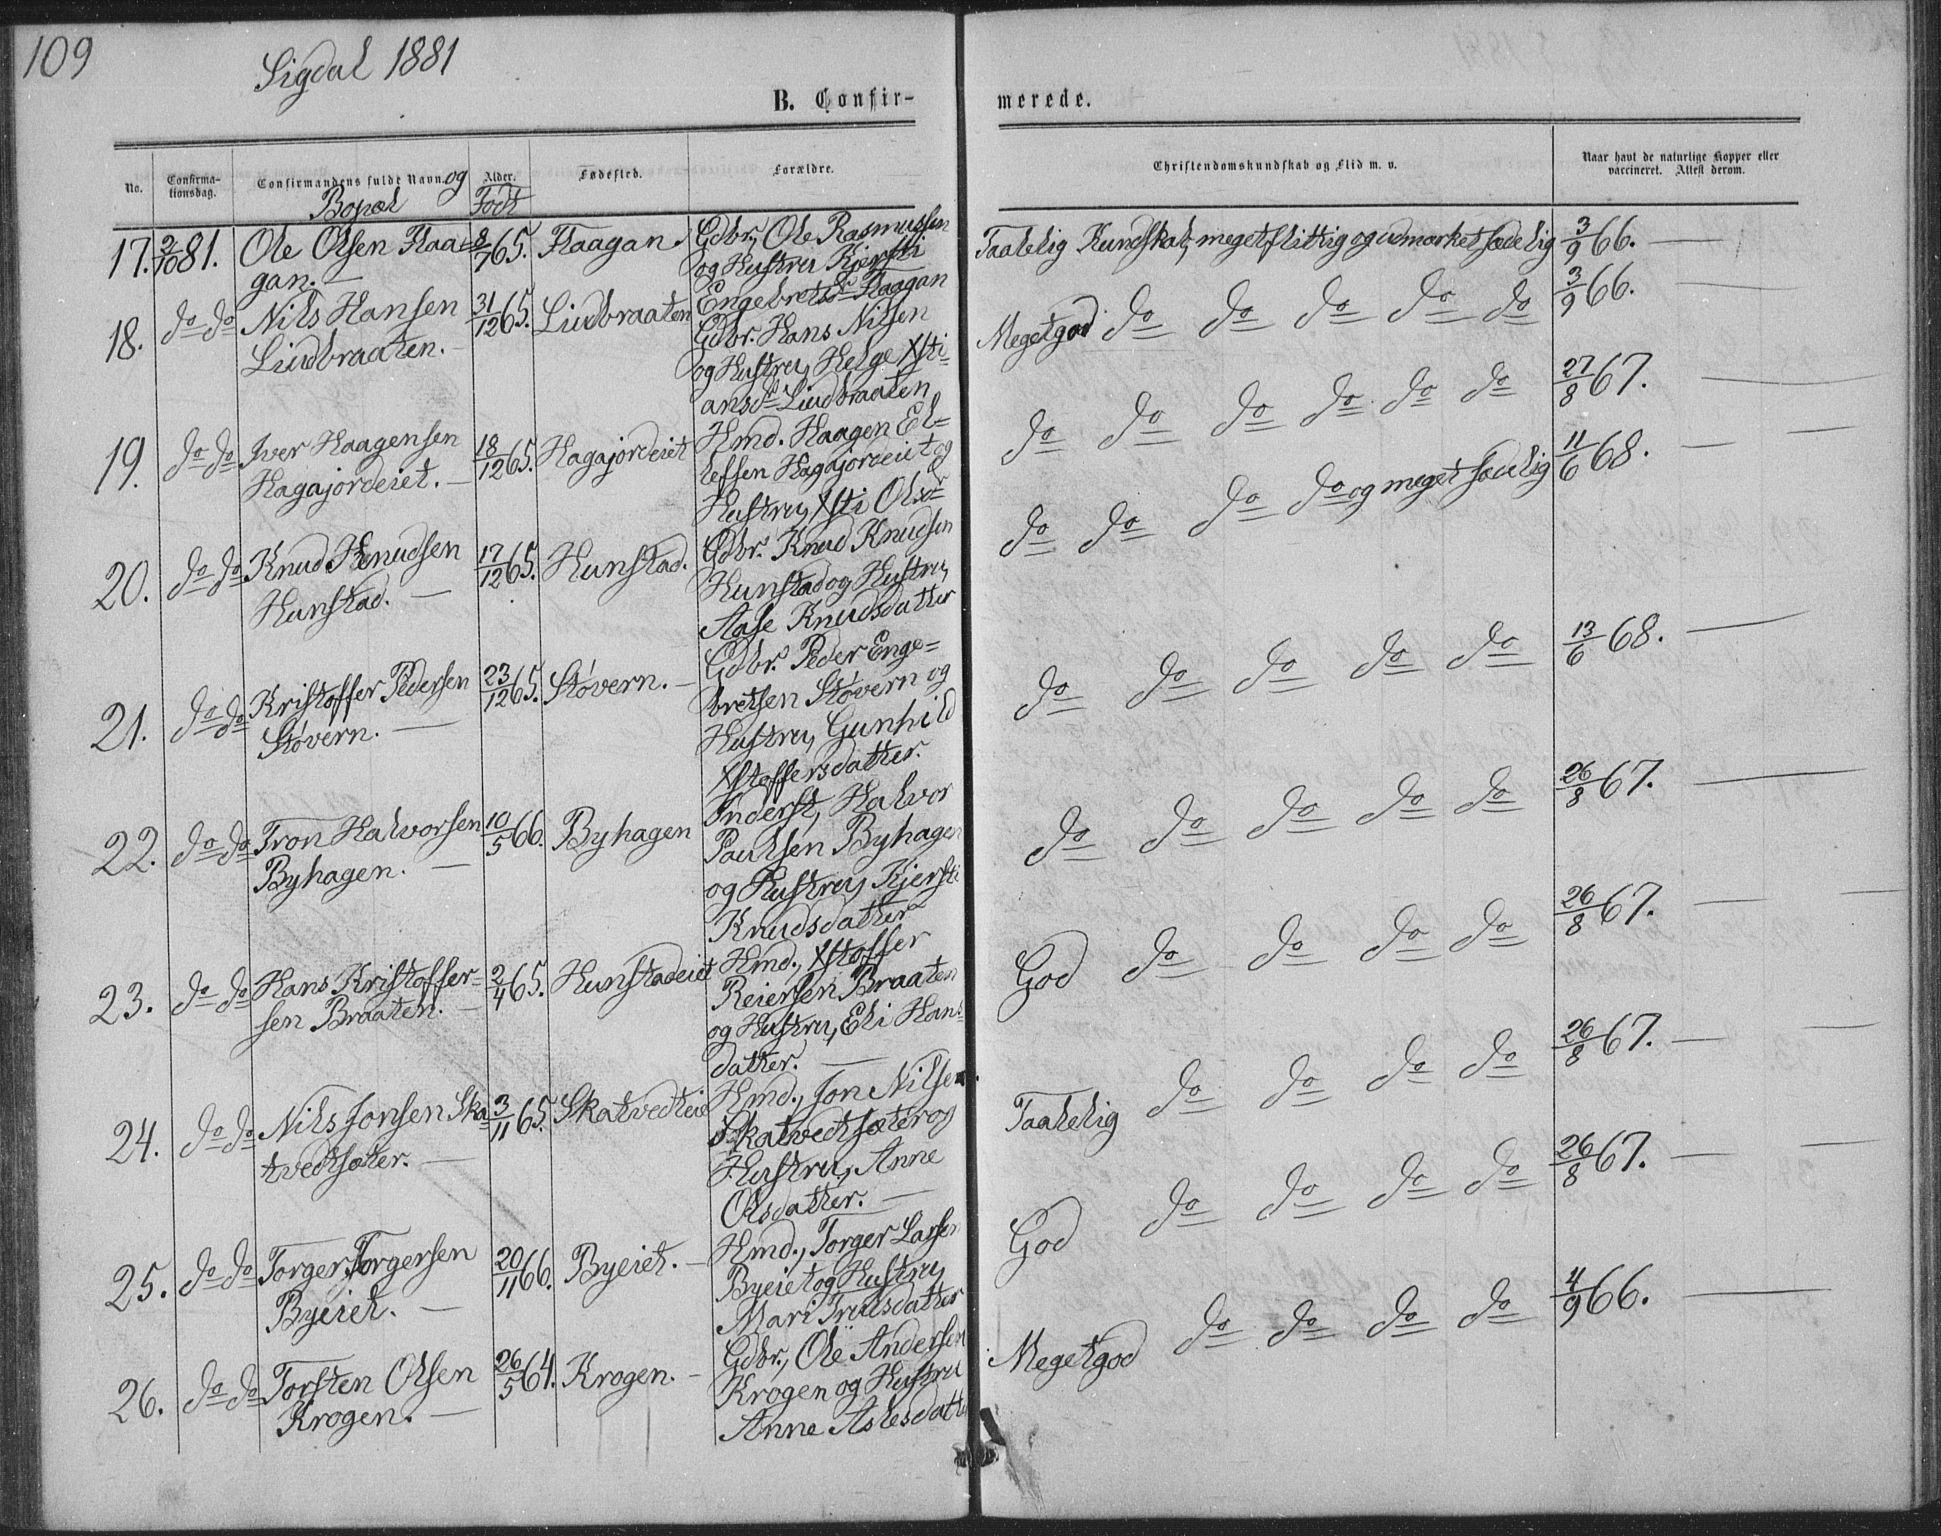 109
Sigdal 1881
B. Confir-
merede.
No.
Confirma-
tionsdag.
Confirmandens fulde Navn og
Bopæl
Alder.
Født
Fødested.
Forældre.
Christendomskundskab og Flid m. v.
Naar havt de naturlige Kopper eller
vaccineret. Attest derom.
17. 2/10 81. Ole Olsen Flaa- 8/7 65. Flaagan Gdbr., Ole Rasmussen Taalelig Kundskab, meget flittig og udmærket sædelig 3/9 66. —
gan. — og Hustru Kjersti
Engebretsd. Flaagan
18. do do Nils Hansen 31/12 65. Liudbraaten Gdbr. Hans Nilsen Meget god do do do do do 3/9 66.
Liudbraaten. — og Hustru, Helge Xsti-
ansd. Liudbraaten
19. do do Iver Haagensen 18/12 65. Hagajordeiet Hmd. Haagen El- do do do do do do 27/8 67.
Hagajordeiet. — lefsen Hagajordeiet og
Hustru, Xsti Olsd.
20. do do Knud Knudsen 17/12 65. Hunstad. Gdbr. Knud Knudsen do do do do og meget sædelig 11/6 68.
Hunstad. — Hunstad og Hustru,
Aase Knudsdatter
21. do do Kristoffer Pedersen 23/12 65. Støvern. — Gdbr. Peder Enge- do do do do do 13/6 68.
Støvern. — bretsen Støvern og
Hustru, Gunhild
Xstoffersdatter.
22. do do Tron Halvorsen 10/5 66. Byhagen Inderst, Halvor do do do do do 26/8 67.
Byhagen. — Paulsen Byhagen
og Hustru, Kjersti
Knudsdatter
23. do do Hans Kristoffer- 2/4 65. Hunstadeiet Hmd., Xstoffer God do do do do 26/8 67.
sen Braaten. — Reiersen Braaten
og Hustru, Eli Hans
datter. —
24. do do Nils Jonsen Ska 3/11 65. Skatvedteie Hmd., Jon Nilsen Taalelig do do do do 26/8 67.
tvedtsæter. — Skatvedtsæter og
Hustru, Anne
Olsdatter. —
25. do do Torger Torgersen 20/11 66. Byeiet. — Hmd., Torger Larsen God do do do do 26/8 67.
Byeiet. — Byeiet og Hustru
Mari Trulsdatter
26. do do Torsten Olsen 26/5 64. Krogen. — Gdbr., Ole Andersen Meget god do do do do 4/9 66.
Krogen. — Krogen og Hustru
Anne Aslesdatte